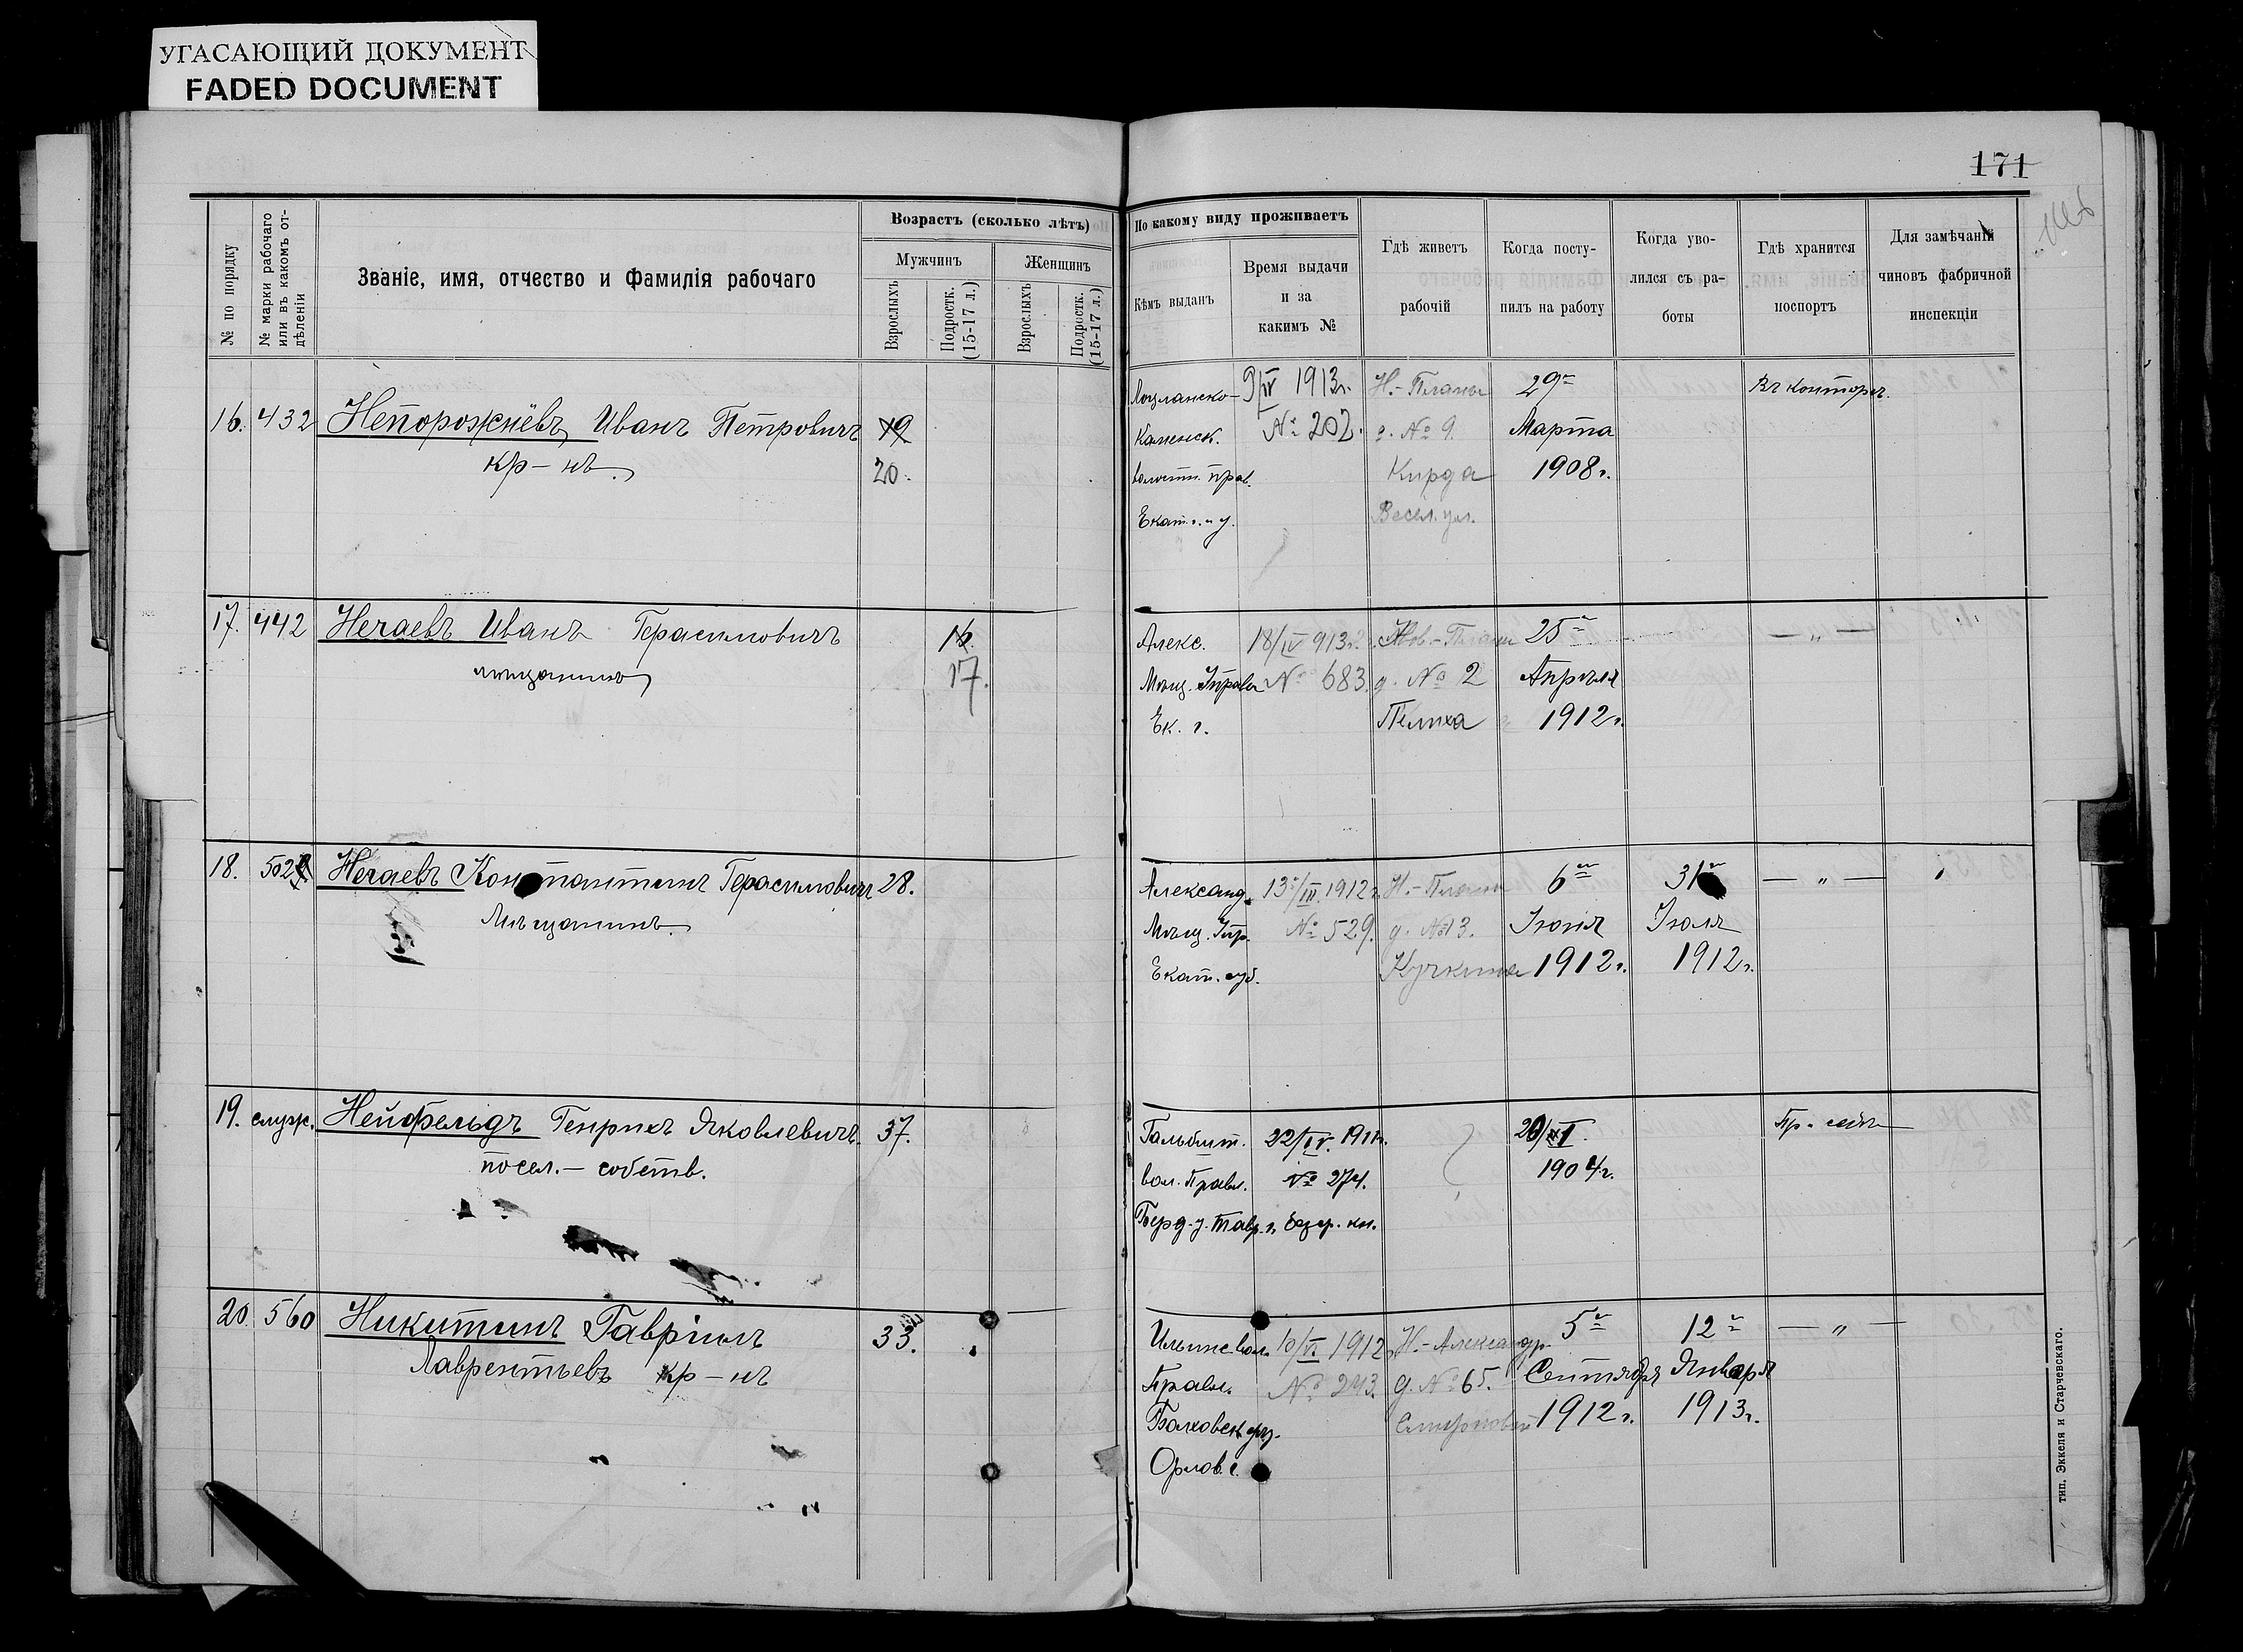 УГАСАЮЩИЙ ДОКУМЕНТ
FADED DOCUMENT
171
№ по порядку
№ марки рабочаго
или въ какомъ от-
дѣленіи
Званіе, имя, отчество и Фамилія рабочаго
Возрастъ (сколько лѣтъ)
Мужчинъ
Женщинъ
Взрослыхъ
Подростк.
(15-17 л.)
Взрослыхъ
Подростк.
(15-17 л.)
По какому виду проживаетъ
Кѣмъ выданъ
Время выдачи
и за
какимъ №
Гдѣ живетъ
рабочій
Когда посту-
пилъ на работу
Когда уво-
лился съ ра-
боты
Гдѣ хранится
поспортъ
Для замѣчаній
чиновъ фабричной
инспекціи
16. 432 Непорожнёвъ Иванъ Петровичъ 19
кр-нъ. 20.
Лоцманско- 9/IV 1913г. Н.-Планы 29го Въ конторѣ.
Каменск. № 202. д. № 9. Марта
волостн. прав. Кирда 1908 г.
Екат. г. и у. Весел. ул.
17. 442 Нечаевъ Иванъ Герасимовичъ 16.
мѣщанинъ 17.
Алекс. 18/IV 913г. Нов.-Планы 25го — „ —
Мѣщ. Управа № 683. д. № 2 Апрѣля
Ек. г. Пелиха 1912 г.
18. 502 Нечаевъ Константинъ Герасимовичъ 28.
Мѣщанинъ.
Александ. 13/III 1912г. Н.-Планы 6го 31го — „ —
Мѣщ. Упр. № 529. д. №13. Іюня Іюля
Екат. губ. Кучкина 1912 г. 1912 г.
19. служ. Нейфельдъ Генрихъ Яковлевичъ. 37.
посел.- собств.
Гальбшт. 22/IV. 1911г. Пр. себѣ
вол. Правл. № 274. 1904г.
Берд. у. Тавр. г.
20. 560 Никитинъ Гавріилъ 33.
Лаврентьевъ кр-нъ
Ильинс. вол. 10/VI 1912 Н.-Александр. 5го 12го — „ —
Правл. № 243. д. № 65. Сентября Января
Болховск. у. 1912 г. 1913 г.
Орлов. г.
тип. Эккеля и Старчевскаго.